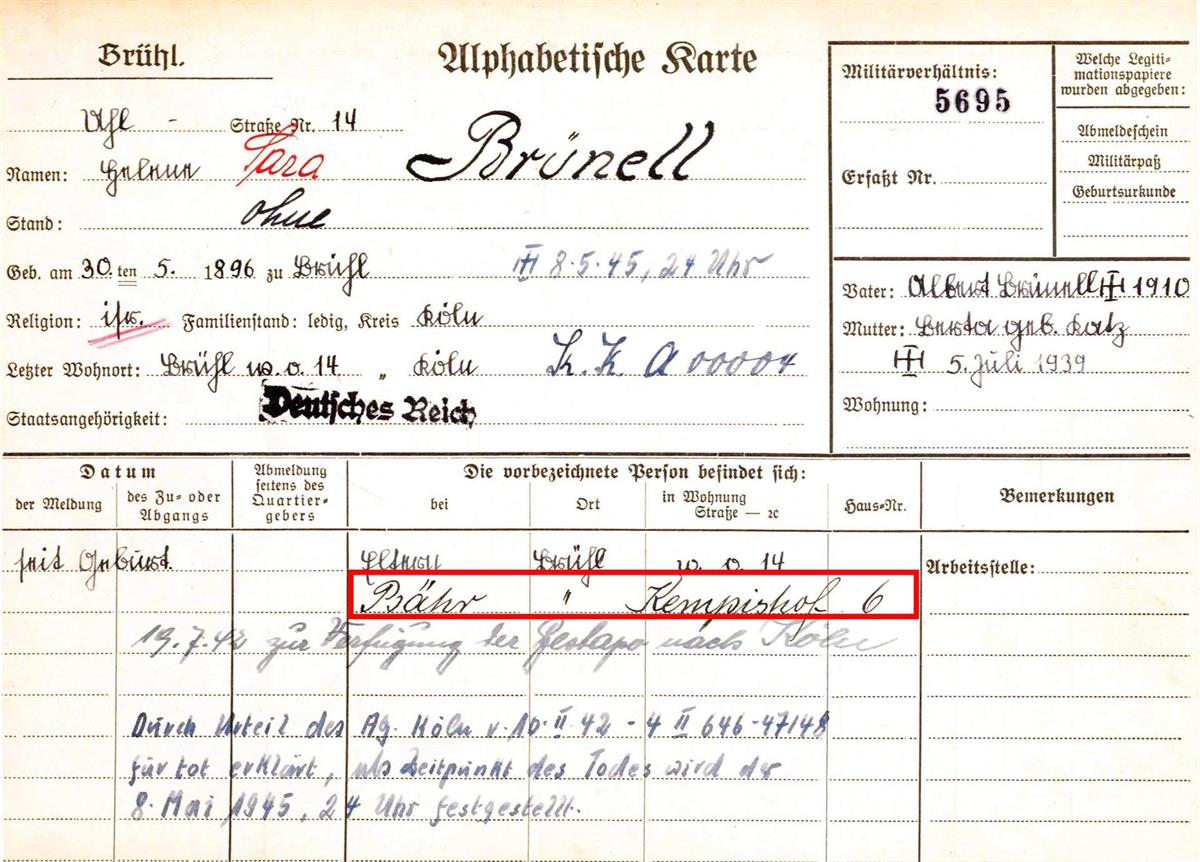 Brühl.
Alphabetische Karte
Uhl - Straße Nr. 14
Namen: Helene Sara Brünell
Stand: ohne
Geb. am 30. ten 5. 1896 zu Brühl
8.5.45, 24 Uhr
Religion: isr. Familienstand: ledig, Kreis Köln
Letzter Wohnort: Brühl w. o. 14 " Köln
K. K. A 00004
Staatsangehörigkeit: Deutsches Reich
Militärverhältnis:
5695
Erfaßt Nr.
Welche Legiti-
mationspapiere
wurden abgegeben:
Abmeldeschein
Militärpaß
Geburtsurkunde
Vater: Albert Brünell 1910
Mutter: Berta geb. Katz
5. Juli 1939
Wohnung:
Datum
der Meldung
des Zu- oder
Abgangs
Abmeldung
seitens des
Quartier-
gebers
Die vorbezeichnete Person befindet sich:
bei
Ort
in Wohnung
Straße — ꝛc
Haus-Nr.
Bemerkungen
seit Geburt. Eltern Brühl w. o. 14
Arbeitsstelle:
Bähr " Kempishof 6
19.7.42 zur Verfügung der Gestapo nach Köln
Durch Urteil des Ag. Köln v. 10. II 42 - 4 II 646-47/48
für tot erklärt, als Zeitpunkt des Todes wird der
8. Mai 1945, 24 Uhr festgestellt.